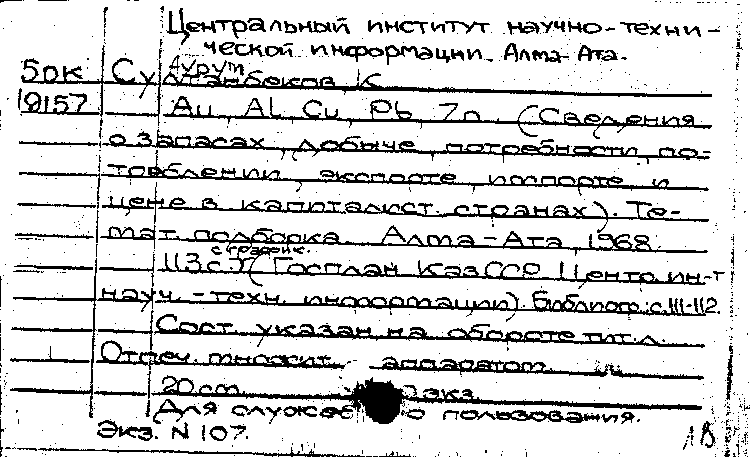 Центральный институт научно-техни-
ческой информации. Алма-Ата.
5ок Султанбеков, К.
9157 Au, Al, Cu, Pb, Zn. (Сведения
о запасах, добыче, потребности, по-
треблении, экспорте, импорте и
цене в капиталист. странах). Те-
мат. подборка. Алма-Ата, 1968.
с график.
113 с. (Госплан КазССР. Центр. ин-т
науч.-техн. информации). Библиогр.: с. 111-112.
Сост. указан на обороте тит. л.
Отпеч. множит. аппаратом.
20 см. экз.
Для служеб о пользования.
Экз. N 107.